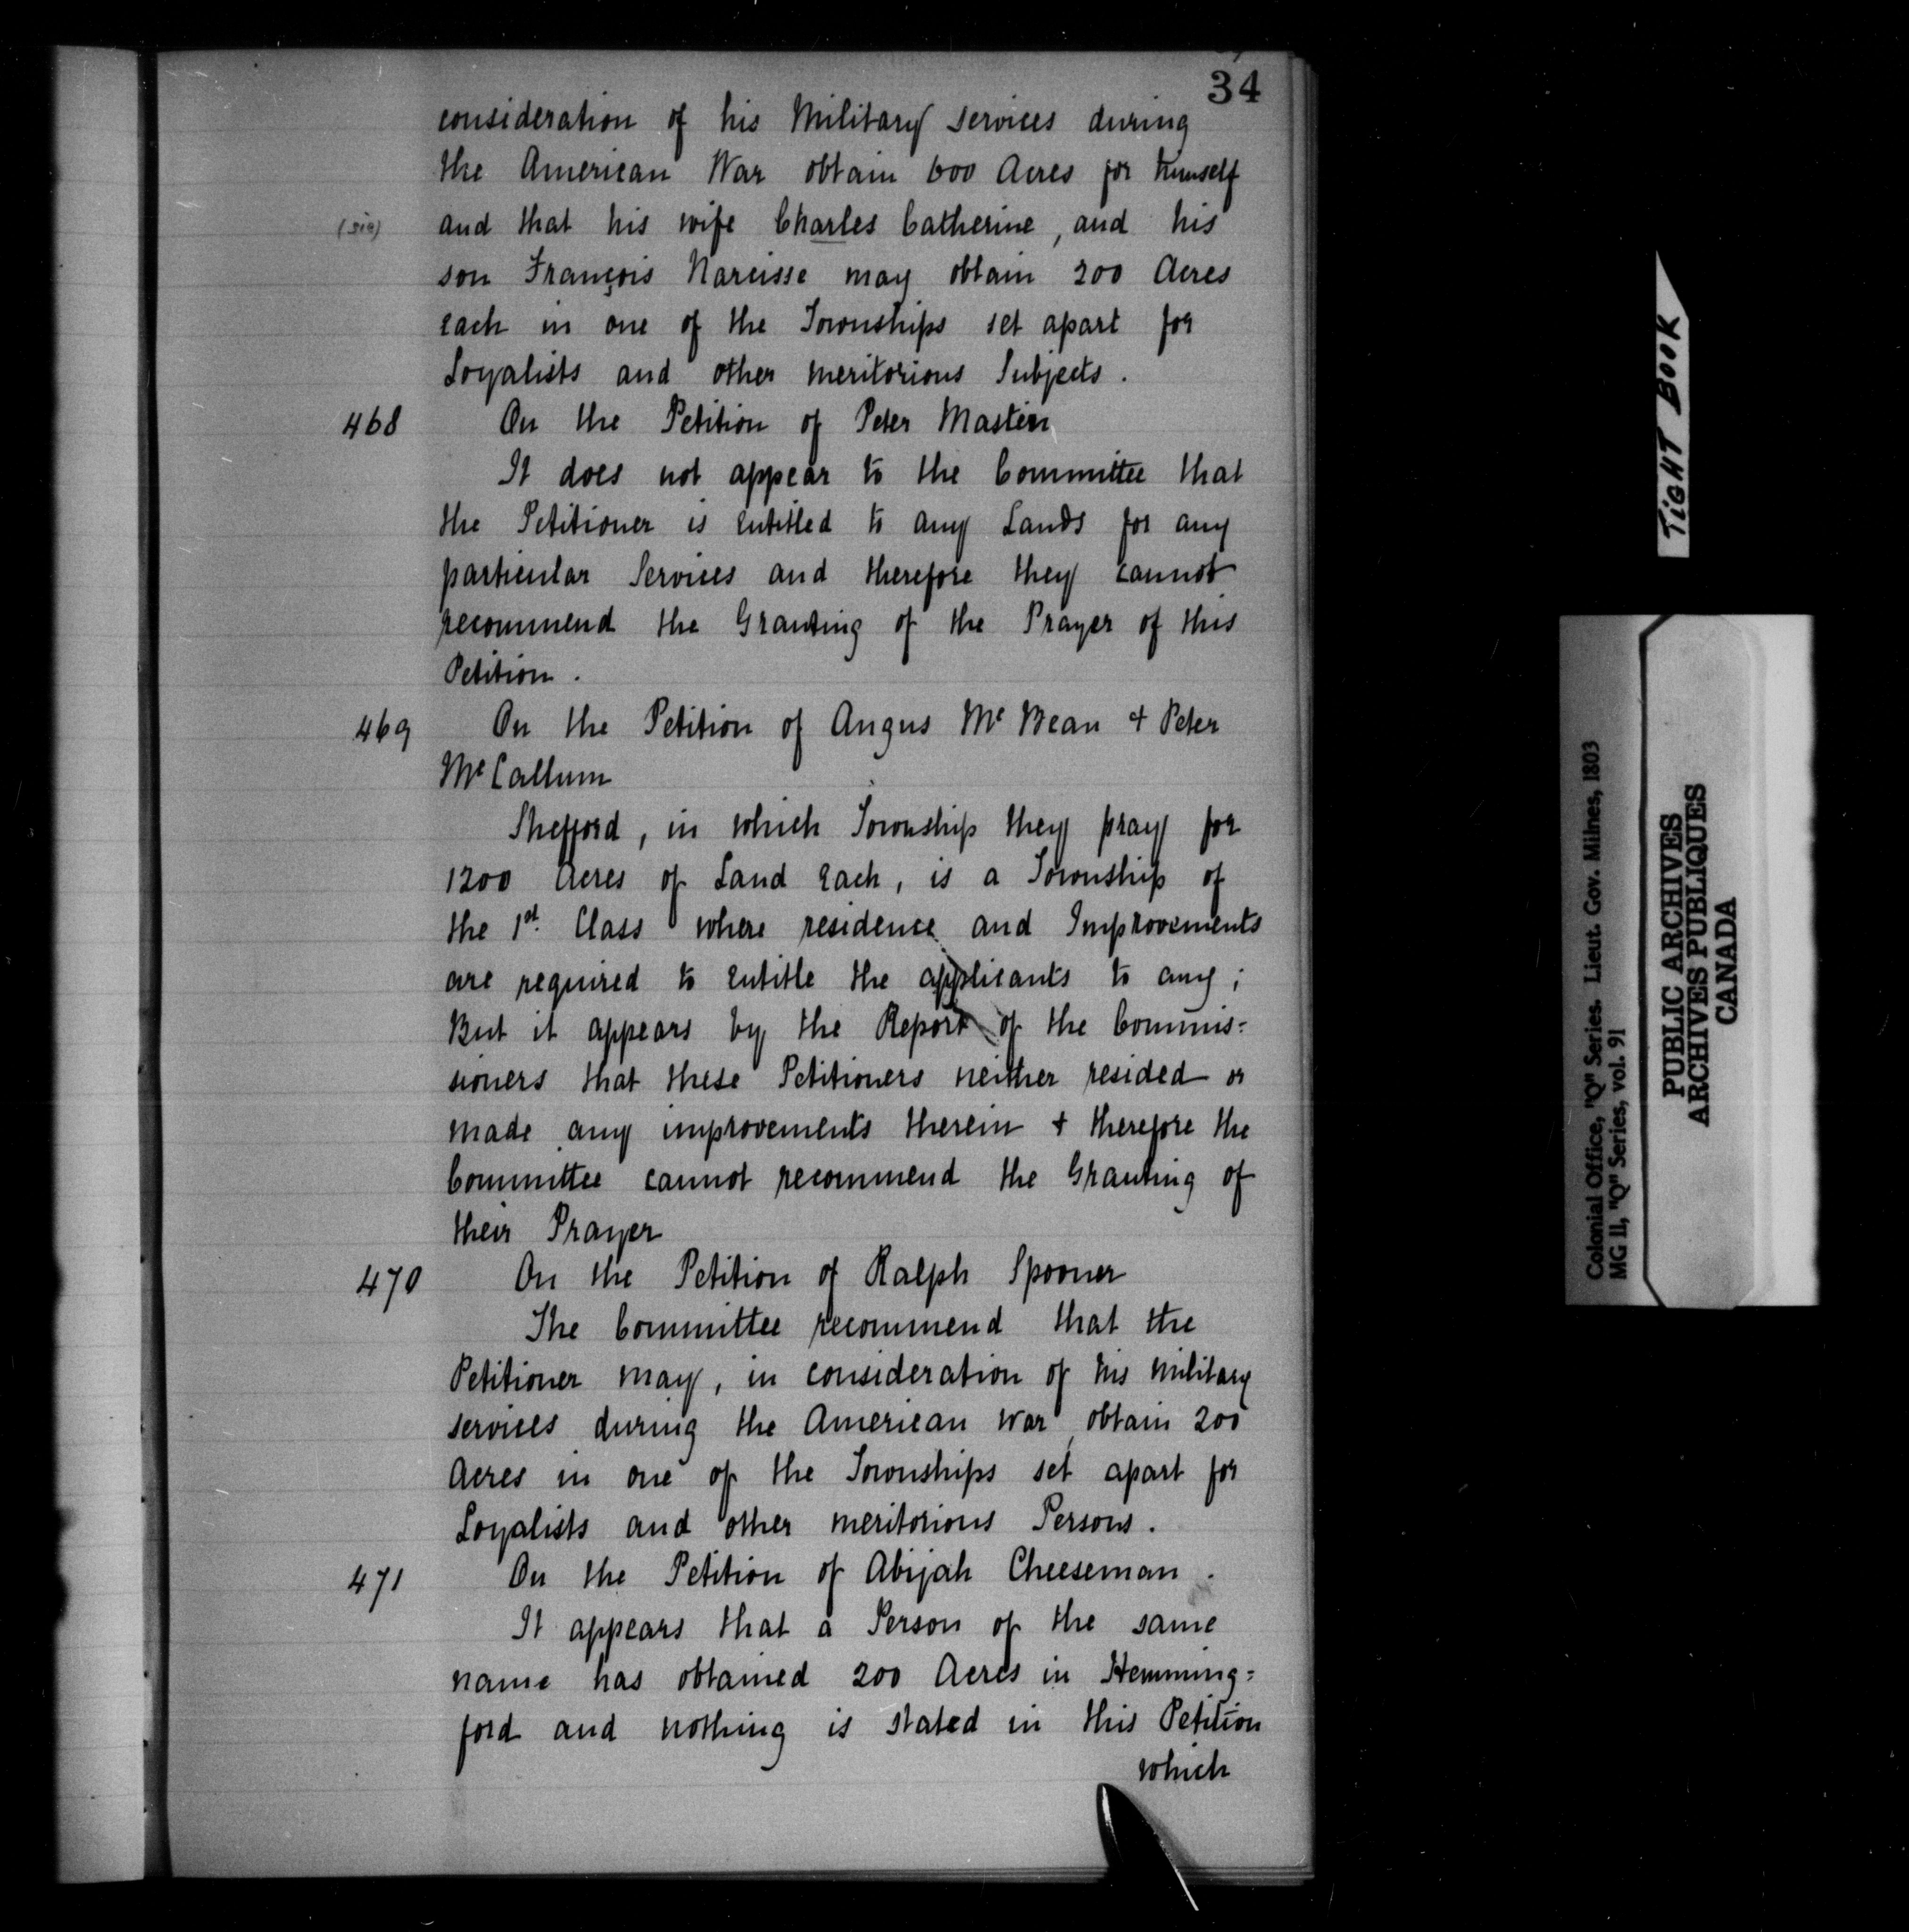 34
consideration of his Military services during
the American War obtain 600 Acres for himself
(sic) and that his wife Charles Catherine, and his
son François Narcisse may obtain 200 Acres
each in one of the Townships set apart for
Loyalists and other meritorious Subjects.
468 On the Petition of Peter Masten
It does not appear to the Committee that
the Petitioner is entitled to any Lands for any
particular Services and therefore they cannot
recommend the Granting of the Prayer of this
Petition.
469 On the Petition of Angus Mc Bean & Peter
Mc Callum
Shefford, in which Township they pray for
1200 Acres of Land each, is a Township of
the 1st. Class where residence and Improvements
are required to entitle the applicants to any;
But it appears by the Report of the Commis=
sioners that these Petitioners neither resided or
made any improvements therein & therefore the
Committee cannot recommend the Granting of
their Prayer
470 On the Petition of Ralph Spooner
The Committee recommend that the
Petitioner may, in consideration of his military
services during the American War, obtain 200
Acres in one of the Townships set apart for
Loyalists and other meritorious Persons.
471 On the Petition of Abijah Cheeseman.
It appears that a Person of the same
name has obtained 200 Acres in Hemming=
ford and nothing is stated in this Petition
which
TIGHT BOOK
Colonial Office, "Q" Series. Lieut. Gov. Milnes, 1803
MG 11, "Q" Series, vol. 91
PUBLIC ARCHIVES
ARCHIVES PUBLIQUES
CANADA